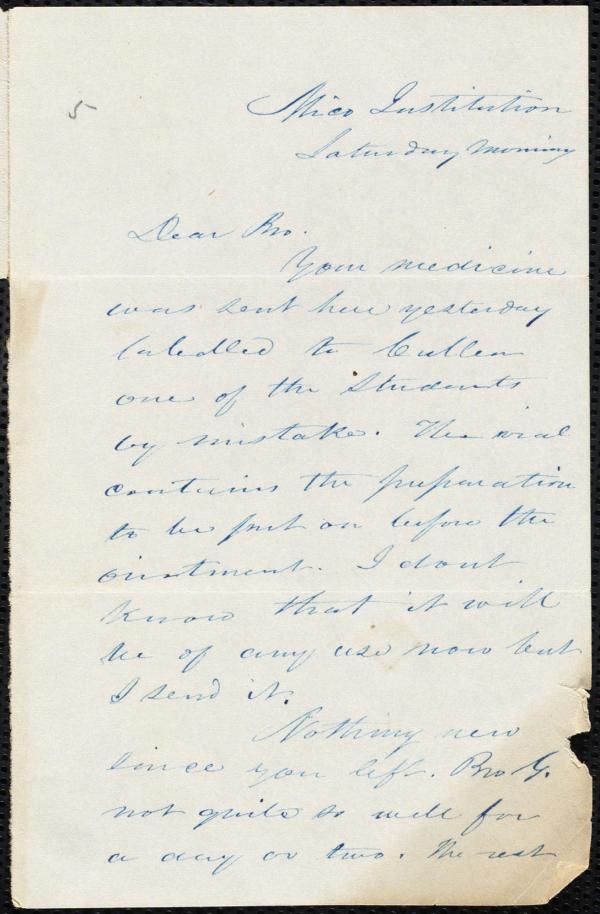 5
Mico Institution
Saturday Morning
Dear Bro.
Your medicine
was sent here yesterday
labelled to Cullen
one of the Students
by mistake. The vial
contains the preparation
to be put on before the
ointment. I dont
know that it will
be of any use now but
I send it.
Nothing new
since you left. Bro G.
not quite so well for
a day or two. The rest